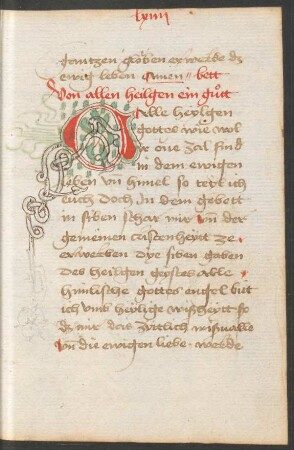 lxiiii
gantzen gloͤben erwerbe dz
ewig leben amen bett
Von allen heiligen ein guͦt
O Alle heyligen
gottes wie wol
ye one zal sind
in dem ewigen
leben vnd himel so teyl ich
eüch doch in dem gebett
in siben schar mir vm der
gemeinen cristenheyt ze
erwerben dye siben gaben
des heiligen geystes alle
himlische gottes engel bitt
ich vmb heylige wißheytt so
dz mir das zitlich mißualle
vnd die ewigen liebe werde